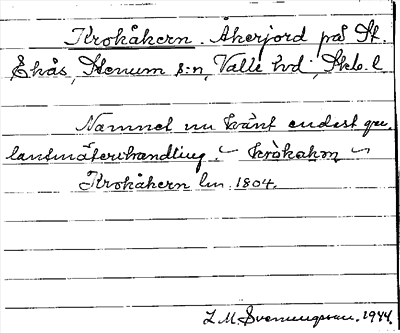 Krokåkern. Åkerjord på St.
Ekås, Stenum s:n, Valle hd, Skb. l.
Namnet nu känt endast gm.
lantmäterihandling. ~ kråkakm ~
Krokåkern lm 1804.
L M Svennungsson. 1944.